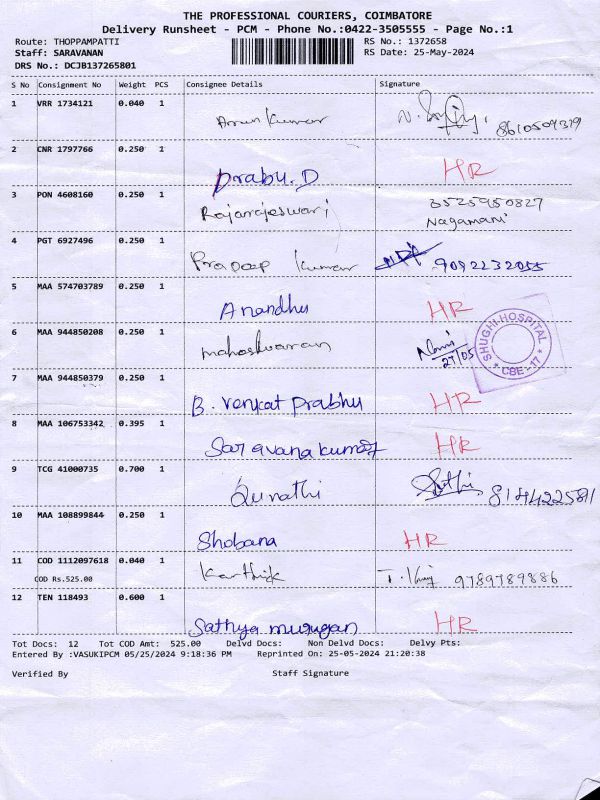 THE PROFESSIONAL COURIERS, COIMBATORE
Delivery Runsheet - PCM - Phone No.:0422-3505555 - Page No.:1
Route: THOPPAMPATTI RS No.: 1372658
Staff: SARAVANAN RS Date: 25-May-2024
DRS No.: DCJB137265801
S No Consignment No Weight PCS Consignee Details Signature
1 VRR 1734121 0.040 1 Arun kumar 8610509379
2 CNR 1797766 0.250 1 Prabu. D HR
3 PON 4608160 0.250 1 Rajarajeswari 6525950827
Nagamani
4 PGT 6927496 0.250 1 Pradeep kumar 9092232055
5 MAA 574703789 0.250 1 Anandhu HR
6 MAA 944850208 0.250 1 maheshwaran 27/05
SHUGHI-HOSPITAL
* CBE-17 *
7 MAA 944850379 0.250 1 B. Venkat Prabhu HR
8 MAA 106753342 0.395 1 Saravanakumar HR
9 TCG 41000735 0.700 1 8144225811
10 MAA 108899844 0.250 1 Shobana HR
11 COD 1112097618 0.040 1 Karthick 9789789886
COD Rs.525.00
12 TEN 118493 0.600 1 Sathya murugan HR
Tot Docs: 12 Tot COD Amt: 525.00 Delvd Docs: Non Delvd Docs: Delvy Pts:
Entered By :VASUKIPCM 05/25/2024 9:18:36 PM Reprinted On: 25-05-2024 21:20:38
Verified By Staff Signature